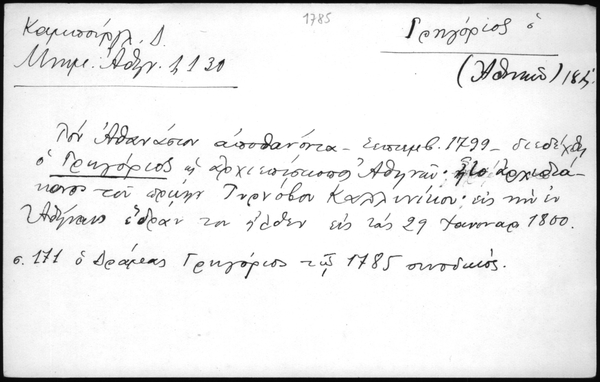 1785
Καμπούρογλ. Δ.
Μνημ. Ἀθην. 1, 130
Γρηγόριος ὁ
(Ἀθηνῶν) 18
Τὸν Ἀθανάσιον ἀποθανόντα – Σεπτεμβ. 1799 – διεδέχθη
ὁ Γρηγόριος ἀρχιεπίσκοπος Ἀθηνῶν· ἦτο ἀρχιδιά-
κονος τοῦ πρώην Τυρνόβου Καλλινίκου· εἰς τὴν ἐν
Ἀθήναις ἕδραν του ἦλθεν εἰς τὰς 29 Ιανουαρ 1800.
σ. 171 ὁ Δράμας Γρηγόριος τῷ 1785 συνοδικός.